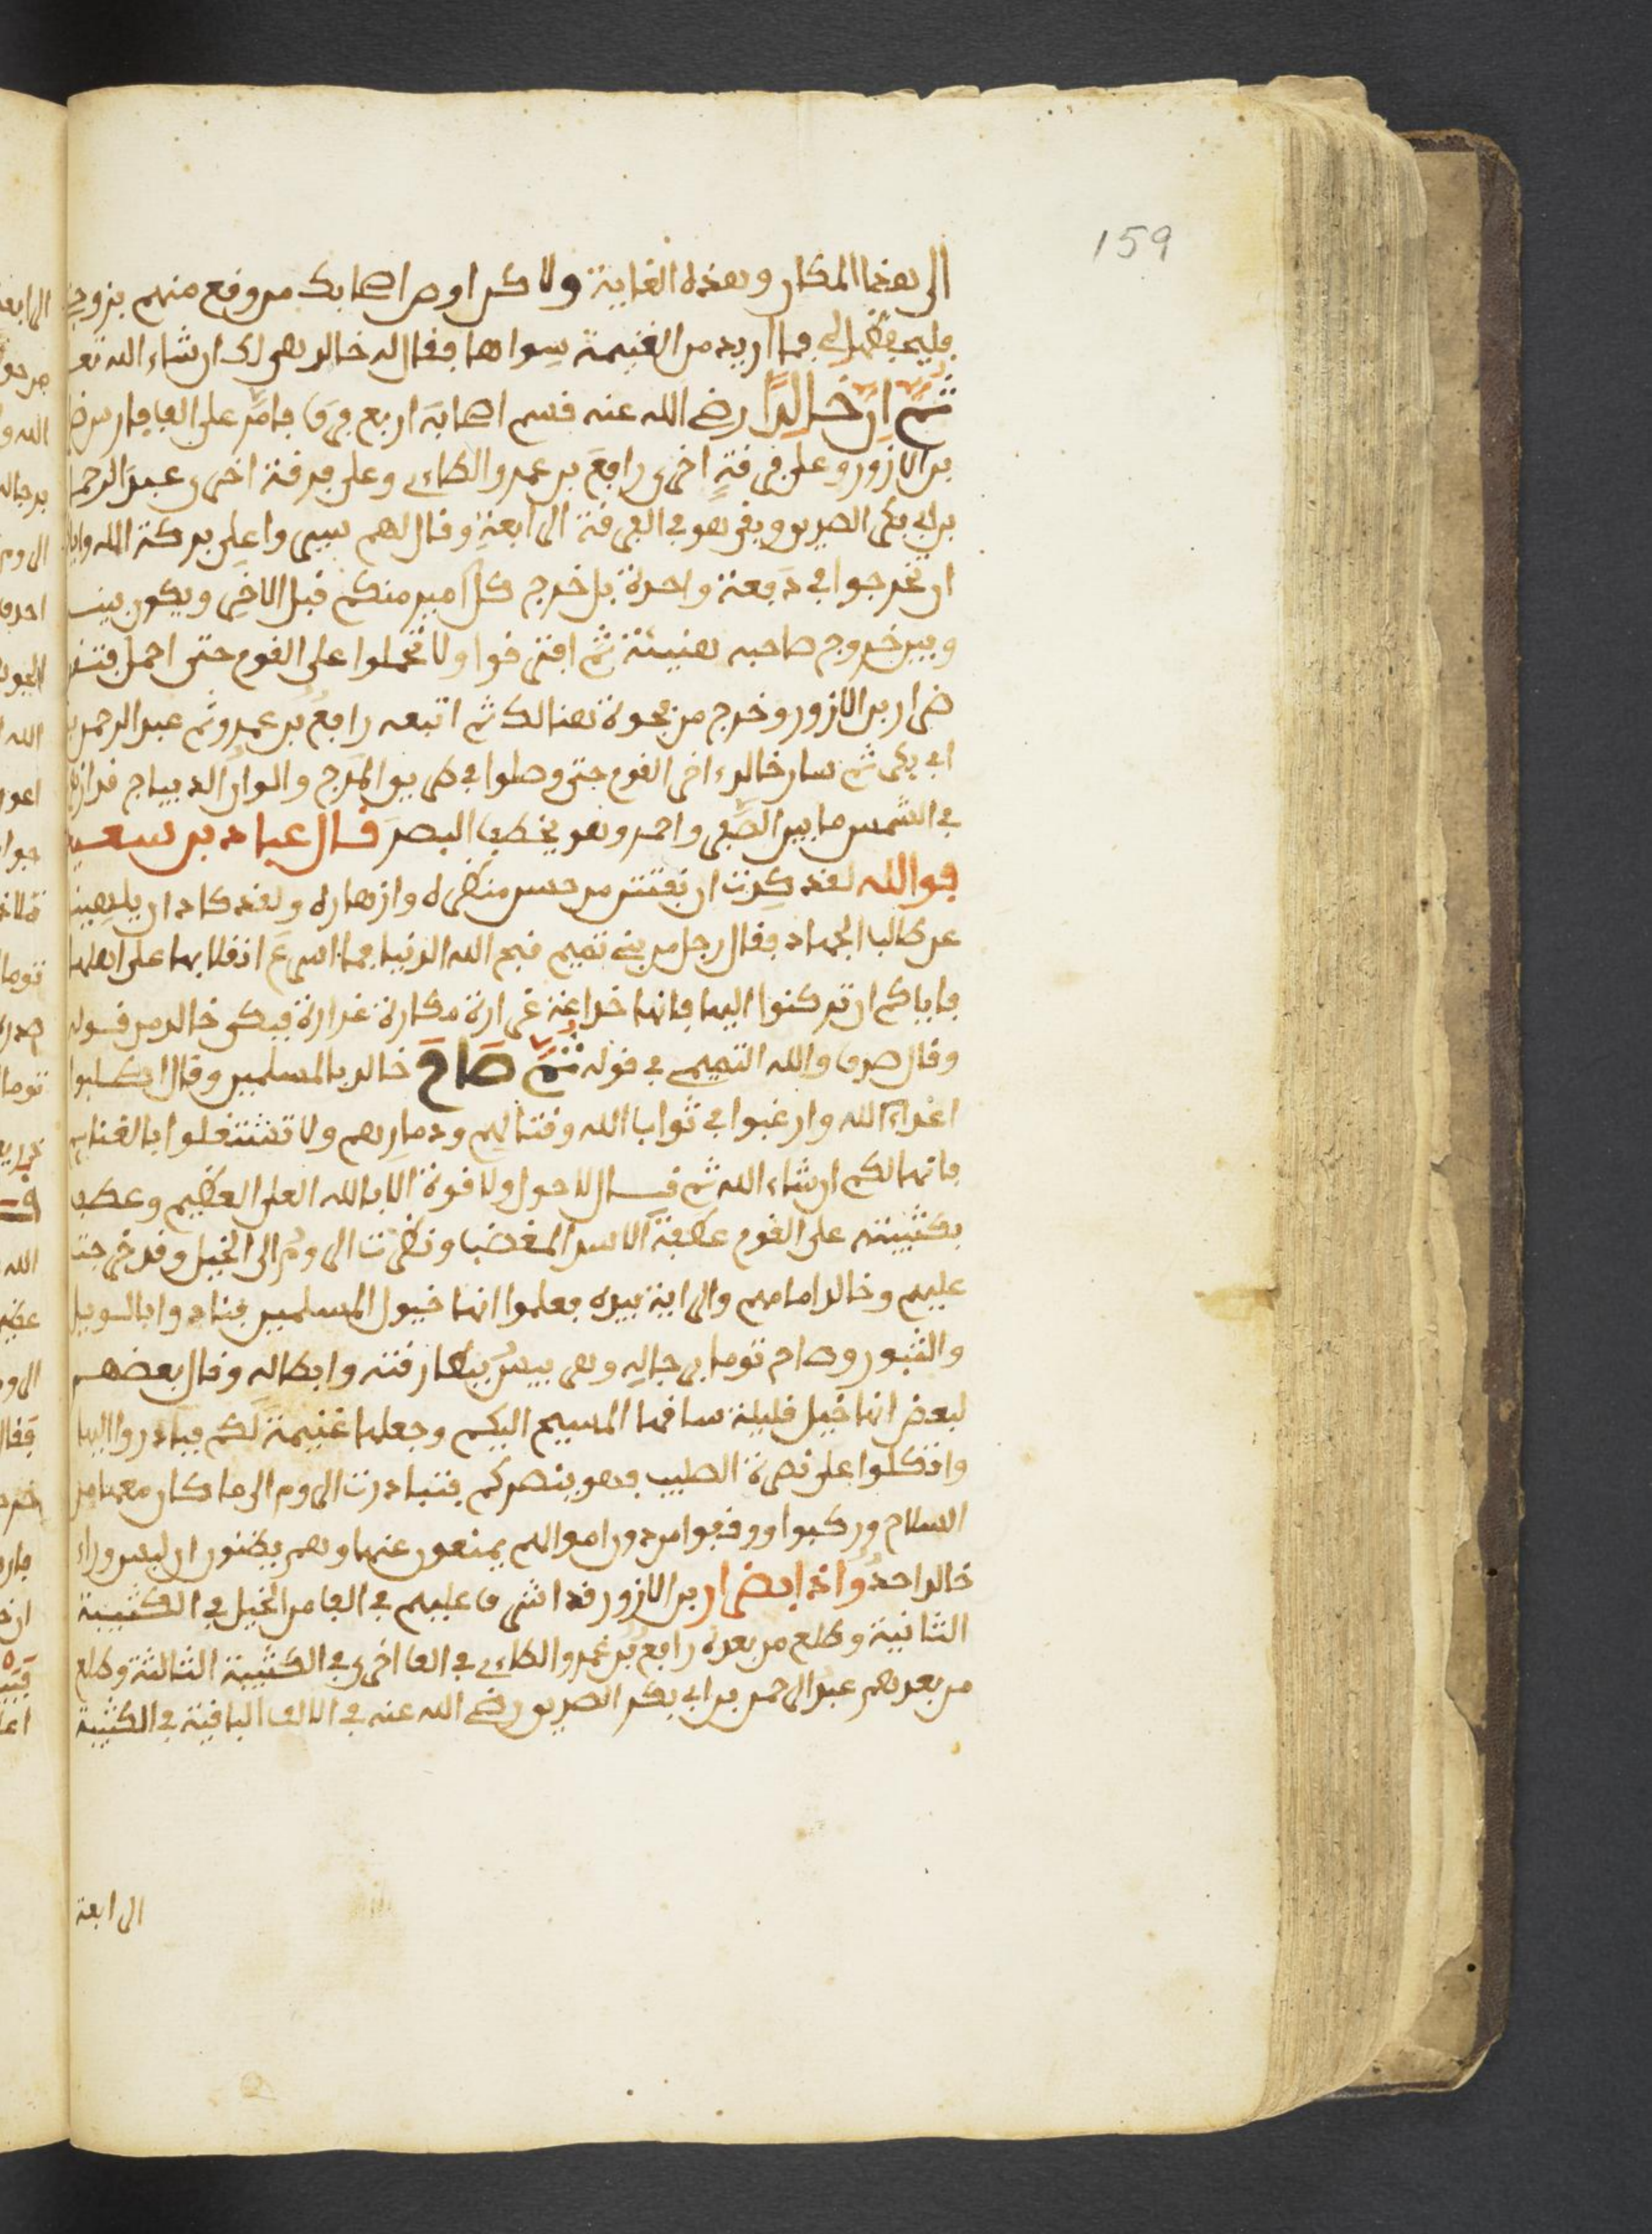 159
الى هذا المكان وهذه الغاية ولاكن اوص اصحابك من وقع منهم بزوجتي
فليحفظها لي فما اريد من الغنيمة سواها فقال له خالد هي لك ان شاء الله تعـ
ثُمَّ اِنَّ خَالِدًا رضي الله عنه قسم اصحابَه اربع فِرَق فامَّر على الف فارس ضر
بن الازور وعلى فِرقةٍ اخرى رافعَ بن عمرو الطاءي وعلى فرقة اخرى عبدَ الرحما
بن ابي بكر الصديق وبقي هو في الفرقة الرابعةِ وقال لهم سيروا على بركة الله وايا
ان تخرجوا في دَفعة واحدة بل يخرج كل امير منكم قبل الاخر ويكون بينـ
وبين خروج صاحبه هنيئة ثم افترقوا ولا تحملوا على القوم حتى احمل فتقد
ضرار بن الازور وخرج من فجوة هنالك ثم اتبعه رافعُ بنُ عمرو ثم عبد الرحمن بن
ابي بكر ثم سار خالد اخر القوم حتى وصلوا في طريق المرج والوان الديباج قد ازها
في الشمس ما بين اصفر واحمر وهو يخطف البصر قال عباد بن سعيد
فوالله لقد كدت ان نفتتن من حسن منظره وازهاره ولقد كاد ان يلهينـ
عن طلب الجهاد فقال رجل من بني تميم قبح الله الدنيا فما اسرعَ انقلابها على اهلها
فاياكم ان تركنوا اليها فانها خداعة غرارة مكارة غدارة فبكى خالد من قوله
وقال صدق والله التميمي في قوله ثُمَّ صَاحَ خالد بالمسلمين وقال اطلبوا
اعداءَ الله وارغبوا في ثواب الله وقتالهم ودمارهم ولا تشتغلوا بالغنايم
فانها لكم ان شاء الله ثم قال لا حول ولا قوة الا بالله العلي العظيم وعطف
بكتيبته على القوم عطفةَ الاسد المغضب ونظرت الرومُ الى الخيل وقد خرجت
عليهم وخالد امامهم والراية بيده فعلموا انها خيول المسلمين فنادوا بالويل
والثبور وصاح توما برجاله وهربيسُ ببطارقته وابطاله وقال بعضهم
لبعض انها خيل قليلة ساقها المسيح اليكم وجعلها غنيمةً لكم فبادروا اليها
واتكلوا على نصرة الصليب فهو ينصركم فتبادرت الروم الى ما كان معها من
السلاح وركبوا ووقفوا من دون اموالهم يمنعون عنها وهم يظنون ان ليس وراء
خالد احدٌ واذا بضرار بن الازور قد اشرق عليهم في الف من الخيل في الكتيبة
الثانية وطلع من بعده رافع بنُ عمرو الطاءي في الف اخرى في الكتيبة الثالثة وطلع
من بعدهم عبد الرحمن بن ابي بكر الصديق رضي الله عنه في الالف الباقية في الكتيبة
الرابعة